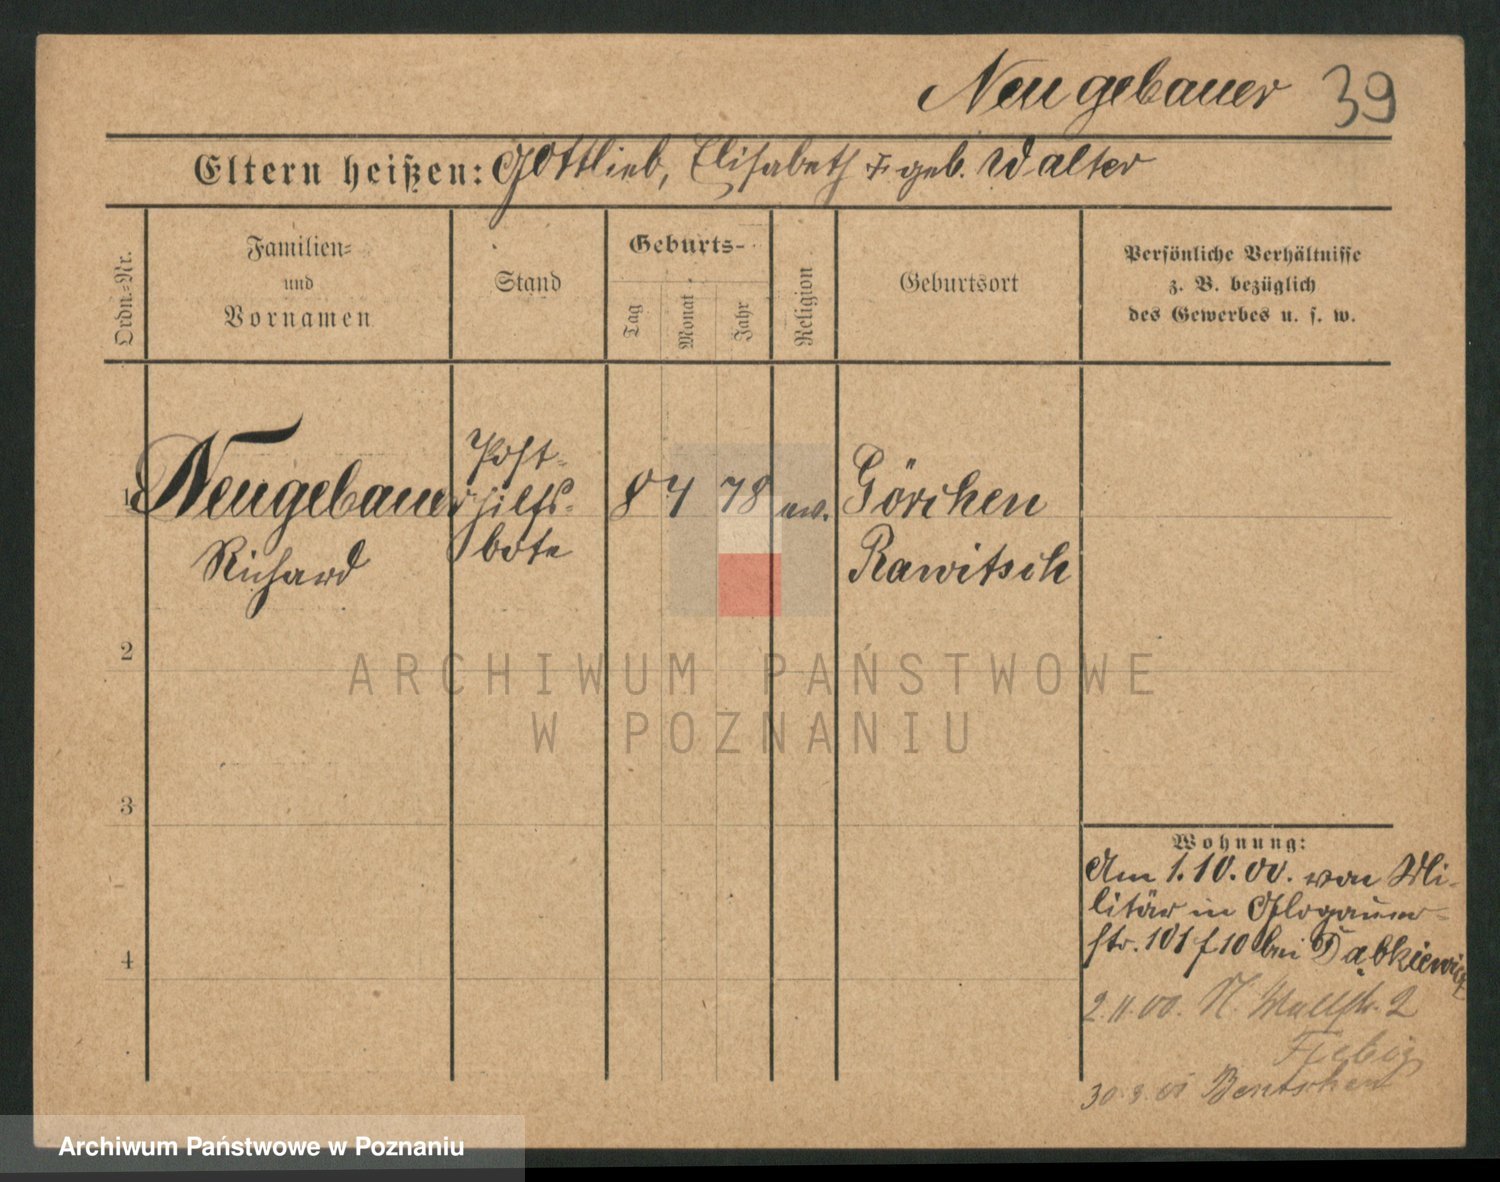 Neugebauer 39
Eltern heißen: Gottlieb, Elisabeth geb. Walter
Ordn.-Nr.
Familien-
und
Vornamen
Stand
Geburts-
Tag
Monat
Jahr
Religion
Geburtsort
Persönliche Verhältnisse
z. B. bezüglich
des Gewerbes u. s. w.
1 Neugebauer
Richard
Post-
hilfs-
bote
8 4 78 ev.
Görchen
Rawitsch
2
3
4
Wohnung:
Am 1.10.00. von Mi-
litär in Glogauer-
str. 101 f 10 bei Dąbkiewicz
2.11.00. N. Wallstr. 2
Fiebig
30.3.01 Bentschen
ARCHIWUM PAŃSTWOWE
W POZNANIU
Archiwum Państwowe w Poznaniu